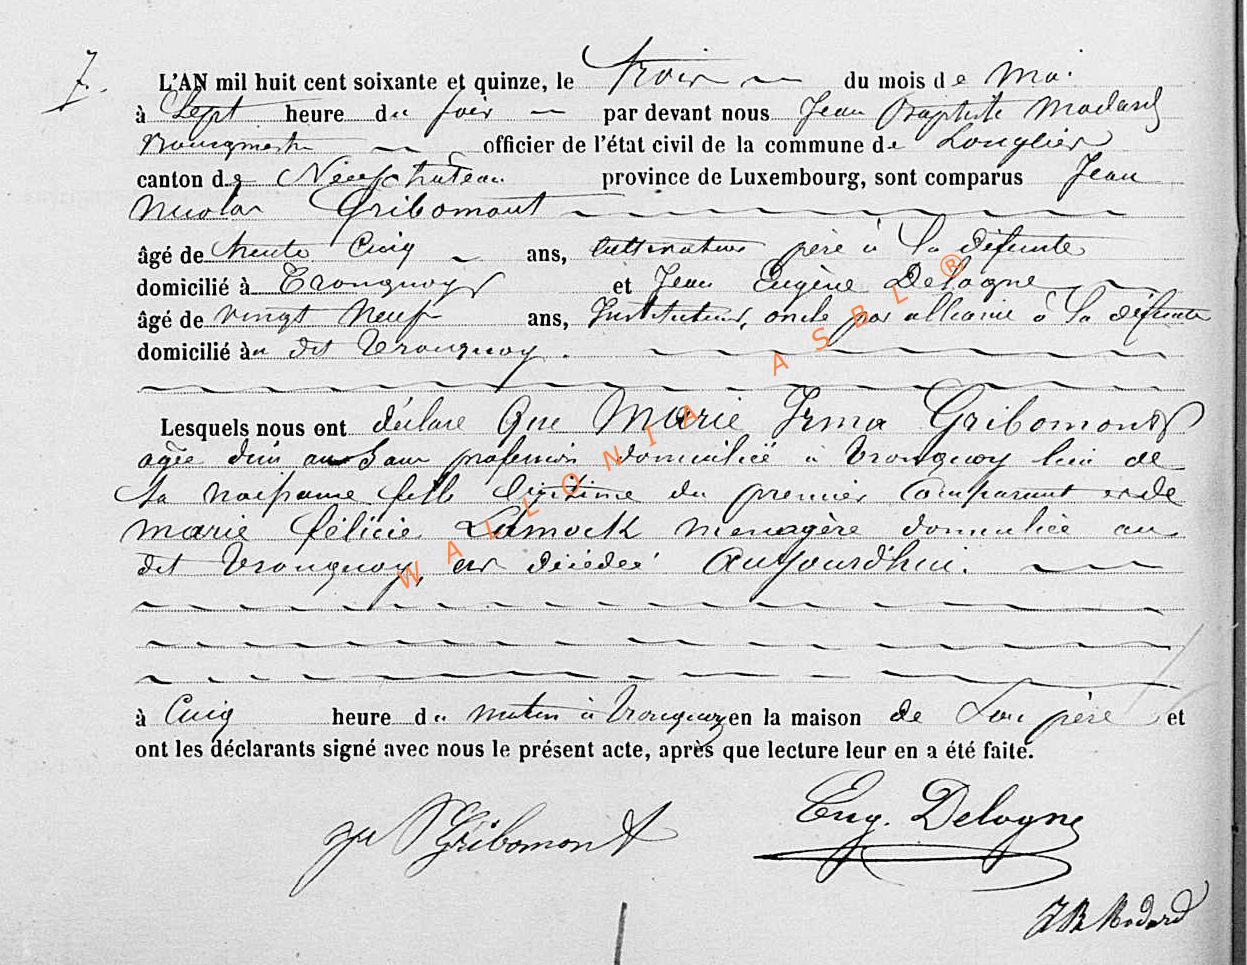 7.
L'AN mil huit cent soixante et quinze, le trois du mois de Mai
à Sept heure du soir par devant nous Jean Baptiste Modard
Bourgmestre officier de l'état civil de la commune de Longlier
canton de Neufchateau province de Luxembourg, sont comparus Jean
Nicolas Gribomont
âgé de trente Cinq ans, cultivateur père à la défunte
domicilié à Tronquoy et Jean Eugène Delogne
âgé de vingt Neuf ans, Instituteur, oncle par alliance à la défunte
domicilié au dit Tronquoy.
Lesquels nous ont déclaré Que Marie Irma Gribomont
agée d'un an Sans profession domiciliée à Tronquoy lieu de
Sa naissance fille légitime du premier Comparant et de
marie félicie Lamock menagère domiciliée au
dit Tronquoy, est décédée Aujourd'hui.
à Cinq heure du matin à Tronquoy en la maison de Son père et
ont les déclarants signé avec nous le présent acte, après que lecture leur en a été faite.
Gribomont
Eug. Delogne
J B Modard
WALLONIA ASBL ®